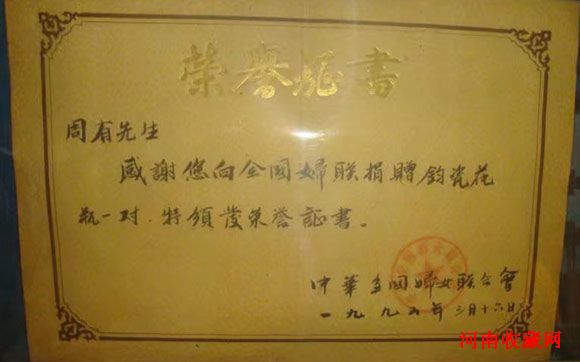 荣誉证书
周有先生
感謝您向全囯婦联捐贈鈞瓷花
瓶一对.特頒發荣誉証書。
中華全囯婦女联合會
一九九五年三月十六日
河南收藏网